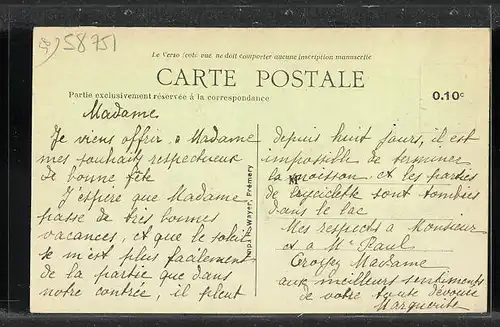 58
58751
Le Verso (coté vue) ne doit comporter aucune inscription manuscrite
CARTE POSTALE
Partie exclusivement réservée à la correspondance
0.10c
Madame
Je viens offrir à Madame
mes souhaits respectueux
de bonne fête
J'espère que Madame
passe de très bonnes
vacances, et que le soleil
se m'est plus facilement
de la partie que dans
notre contrée, il pleut
Wayer, Prémery
depuis huit jours, il est
impossible de terminer
la moisson, et les parties
de bycicleth sont tombées
dans le lac
Mes respects à Monsieur
et à Mr Paul
Croyez Madame
aux meilleurs sentiments
de votre toute dévouée
Marguerite